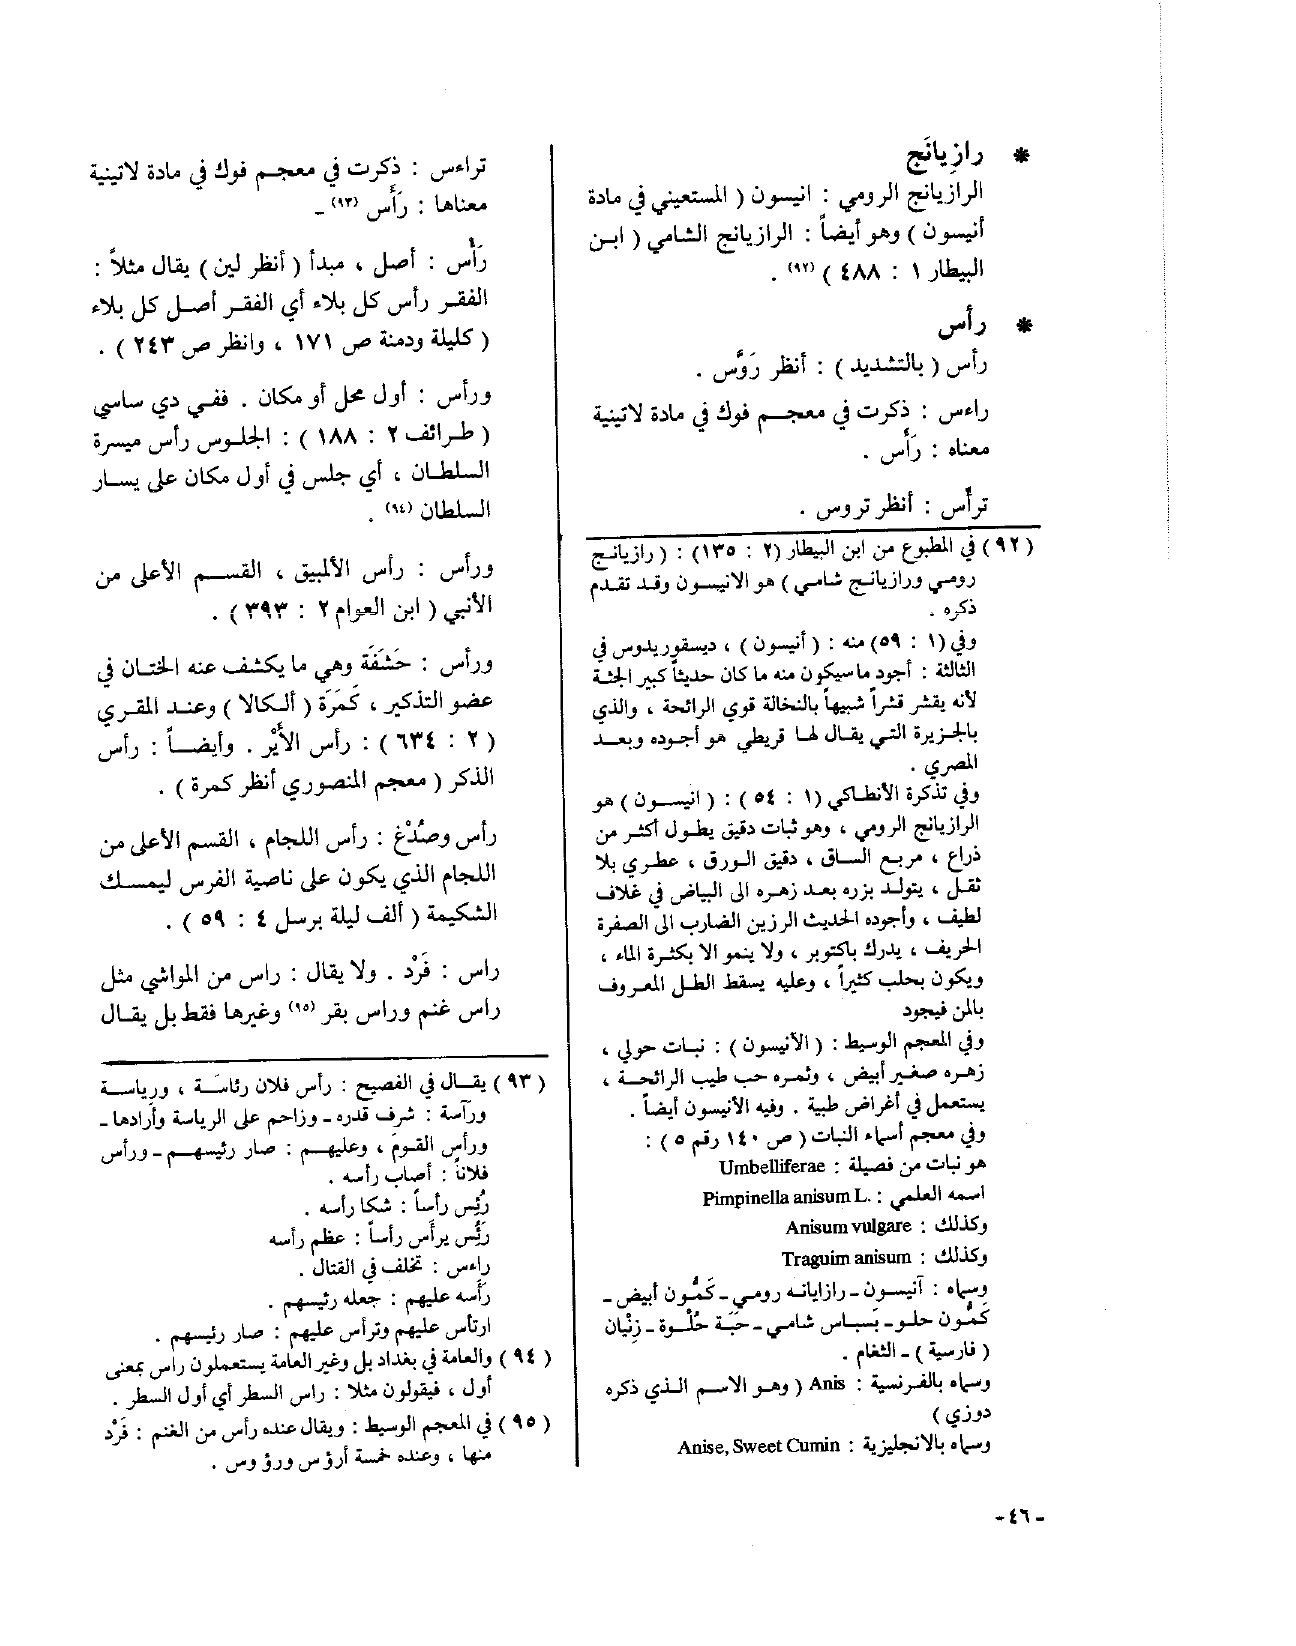 * رازِيانَج
الرازيانج الرومي : انيسون ( المستعيني في مادة
أنيسون ) وهو أيضاً : الرازيانج الشامي ( ابن
البيطار ١ : ٤٨٨ ) (٩٢) .
* رأس
رأس ( بالتشديد ) : أنظر رَوَّس .
راءس : ذكرت في معجم فوك في مادة لاتينية
معناه : رَأَس .
ترأس : أنظر تروس .
( ٩٢ ) في المطبوع من ابن البيطار (٢ : ١٣٥) : ( رازيانج
رومي ورازيانج شامي ) هو الانيسون وقد تقدم
ذكره .
وفي (١ : ٥٩) منه : ( أنيسون ) ، ديسقوريدوس في
الثالثة : أجود ماسيكون منه ما كان حديثاً كبير الجثة
لأنه يقشر قشراً شبيهاً بالنخالة قوي الرائحة ، والذي
بالجزيرة التي يقال لها قريطي هو أجوده وبعد
المصري .
وفي تذكرة الأنطاكي (١ : ٥٤ ) : ( انيسون ) هو
الرازيانج الرومي ، وهو ثبات دقيق يطول أكثر من
ذراع ، مربع الساق ، دقيق الورق ، عطري بلا
ثقل ، يتولد بزره بعد زهره الى البياض في غلاف
لطيف ، وأجوده الحديث الرزين الضارب الى الصفرة
الحريف ، يدرك باكتوبر ، ولا ينمو الا بكثرة الماء ،
ويكون بحلب كثيراً ، وعليه يسقط الطل المعروف
بالمن فيجود
وفي المعجم الوسيط : ( الآنيسون ) : نبات حولي ،
زهره صغير أبيض ، وثمره حب طيب الرائحة ،
يستعمل في أغراض طبية . وفيه الأنيسون أيضاً .
وفي معجم أسماء النبات ( ص ١٤٠ رقم ٥ ) :
هو نبات من فصيلة : Umbelliferae
اسمه العلمي : Pimpinella anisum L.
وكذلك : Anisum vulgare
وكذلك : Traguim anisum
وسماه : آنيسون - رازايانه رومي - كَمُّون أبيض -
كَمُّون حلو - بَسباس شامي - حَبَّة حُلْوة - زِنْيان
( فارسية ) - الثغام .
وسماه بالفرنسية : Anis ( وهو الاسم الذي ذكره
دوزي )
وسماه بالانجليزية : Anise, Sweet Cumin
تراءس : ذكرت في معجم فوك في مادة لاتينية
معناها : رَأَس (٩٣) -
رَأْس : أصل ، مبدأ ( أنظر لين ) يقال مثلاً :
الفقر رأس كل بلاء أي الفقر أصل كل بلاء
( كليلة ودمنة ص ١٧١ ، وانظر ص ٢٤٣ ) .
ورأس : أول محل أو مكان . ففي دي ساسي
( طرائف ٢ : ١٨٨ ) : الجلوس رأس ميسرة
السلطان ، أي جلس في أول مكان على يسار
السلطان (٩٤) .
ورأس : رأس الألمبيق ، القسم الأعلى من
الأنبي ( ابن العوام ٢ : ٣٩٣ ) .
ورأس : حَشَفَة وهي ما يكشف عنه الختان في
عضو التذكير ، كَمَرَة ( ألكالا ) وعند المقري
( ٢ : ٦٣٤ ) : رأس الأَيْر . وأيضاً : رأس
الذكر ( معجم المنصوري أنظر كمرة ) .
رأس وصُدْغ : رأس اللجام ، القسم الأعلى من
اللجام الذي يكون على ناصية الفرس ليمسك
الشكيمة ( ألف ليلة برسل ٤ : ٥٩ ) .
راس : فَرْد . ولا يقال : راس من المواشي مثل
راس غنم وراس بقر (٩٥) وغيرها فقط بل يقال
( ٩٣ ) يقال في الفصيح : رأس فلان رئاسَة ، ورياسة
ورآسة : شرف قدره - وزاحم على الرياسة وأرادها -
ورأس القومَ ، وعليهم : صار رئيسهم - ورأس
فلاناً : أصاب رأسه .
رُئِس رأساً : شكا رأسه .
رَئِس يرأَس رأساً : عظم رأسه
راءس : تخلف في القتال .
رَأسه عليهم : جعله رئيسهم .
ارتأس عليهم وترأس عليهم : صار رئيسهم .
( ٩٤ ) والعامة في بغداد بل وغير العامة يستعملون رأس بمعنى
أول ، فيقولون مثلا : راس السطر أي أول السطر .
( ٩٥ ) في المعجم الوسيط : ويقال عنده رأس من الغنم : فَرْد
منها ، وعنده خمسة أرؤس ورؤوس .
- ٤٦ -